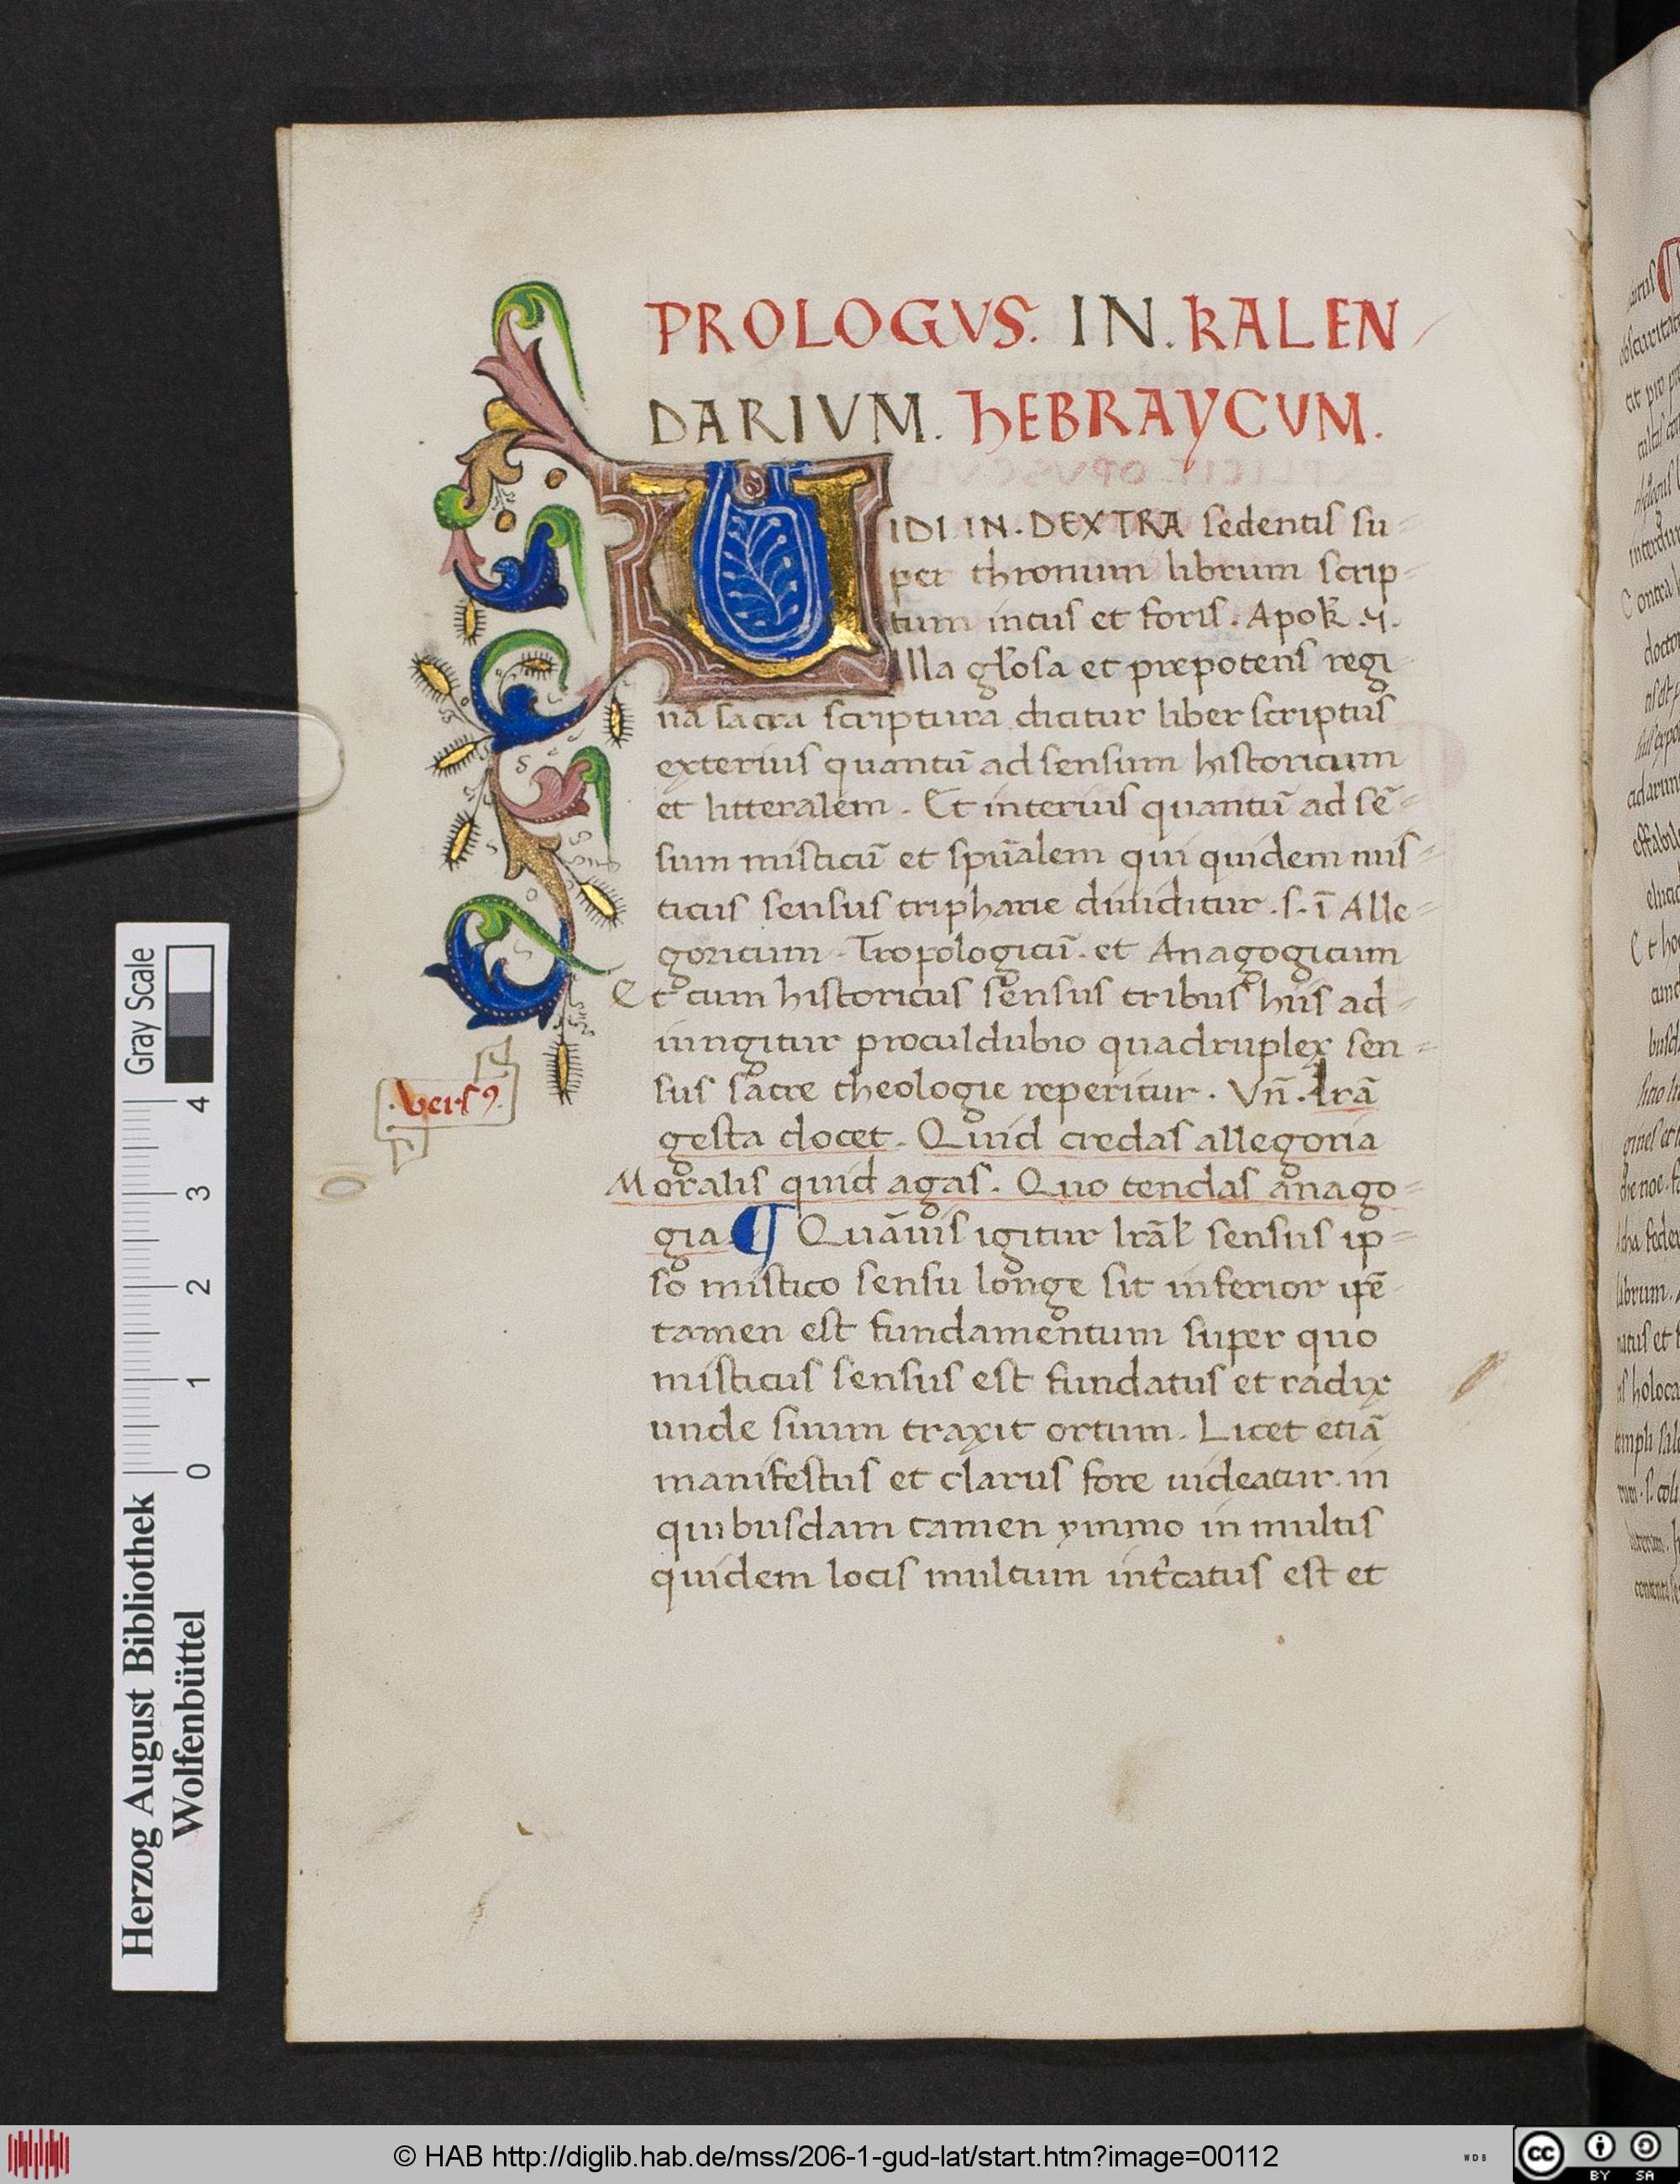 PROLOGVS. IN. KALEN
DARIVM. HEBRAYCUM.
UIDI. IN. DEXTRA sedentis su-
per thronum librum scrip-
tum intus et foris. Apok̄. 5.
Illa gl̄osa et prepotens regi-
na sacra scriptura dicitur liber scriptus
exterius quantū ad sensum historicum
et litteralem. Et interius quantū ad sē-
sum misticū et spūalem qui quidem mis-
ticus sensus tripharie diuiditur. s. ī Alle-
goricum. Tropologicū. et Anagogicum
Et cum historicus sensus tribus hiis ad-
iungitur proculdubio quadruplex sen-
sus sacre theologie reperitur. Vn̄. lrā
.versꝰ.
gesta docet. Quid credas allegoria
Moralis quid agas. Quo tendas anago-
gia. ¶ Quāuis igitur lrāl̄ sensus ip-
so mistico sensu longe sit inferior ip̄e
tamen est fundamentum super quo
misticus sensus est fundatus et radix
unde suum traxit ortum. Licet etiā
manifestus et clarus fore uideatur. in
quibusdam tamen ymmo in multis
quidem locis multum int̄catus est et
Gray Scale
4 3 2 1 0
Herzog August Bibliothek
Wolfenbüttel
© HAB http://diglib.hab.de/mss/206-1-gud-lat/start.htm?image=00112
WDB
cc BY SA